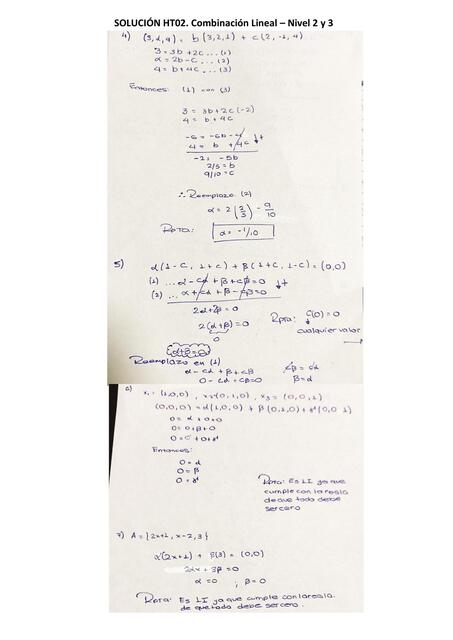 SOLUCIÓN HT02. Combinación Lineal – Nivel 2 y 3
4) (3, α, 4) = b (3, 2, 1) + c (2, -1, 4)
3 = 3b + 2c ... (1)
α = 2b - c ... (2)
4 = b + 4c ... (3)
Entonces: (1) con (3)
3 = 3b + 2c (-2)
4 = b + 4c
-6 = -6b - 4c
4 = b + 4c
-2 = -5b
2/5 = b
9/10 = c
∴ Reemplazo (2)
α = 2 (2/5) - 9/10
Rpta: α = -1/10
5) α (1-c, 1+c) + β (1+c, 1-c) = (0,0)
(1) ... α - cα + β + cβ = 0
(2) ... α + cα + β - cβ = 0
2α + 2β = 0
2 (α + β) = 0
0
α + β = 0
Rpta: C(0) = 0
cualquier valor
Reemplazo en (1)
α - cα + β + cβ
0 - cα + cβ = 0
cβ = cα
β = α
6) x₁ = (1,0,0) , x₂ = (0,1,0) , x₃ = (0,0,1)
(0,0,0) = α (1,0,0) + β (0,1,0) + γ (0,0,1)
0 = α + 0 + 0
0 = 0 + β + 0
0 = 0 + 0 + γ
Entonces:
0 = α
0 = β
0 = γ
Rpta: Es LI ya que
cumple con la regla
de que todo debe
ser cero
7) A = {2x+1, x-2, 3}
α (2x+1) + β(3) = (0,0)
2αx + 3β = 0
α = 0 ; β = 0
Rpta: Es LI ya que cumple con la regla
de que todo debe ser cero.